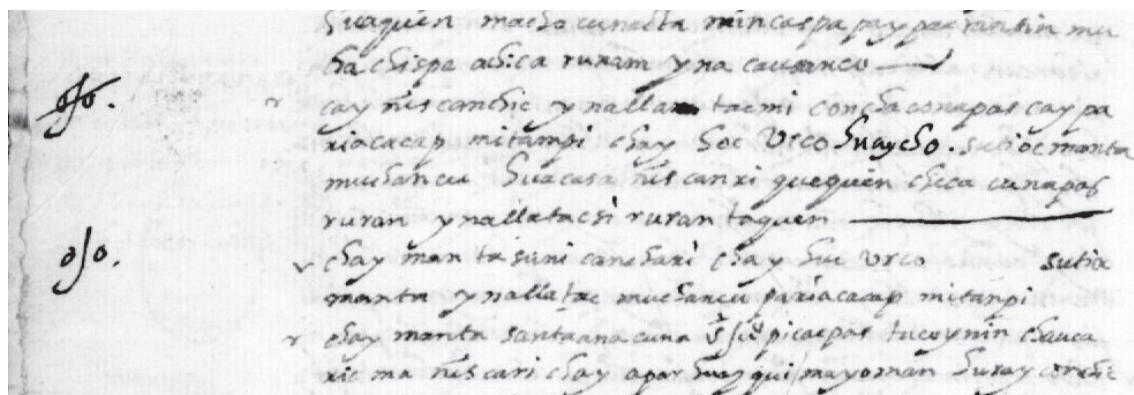 huaquen machocunacta mincaspa paypac rantin mu
chachispa achica runam yna causancu
%. cay ñiscanchic ynallatacmi conchaconapas caypa
riacacap mitampi chay hoc Vrco huaycho. sutiocmanta
muchancu huacasa ñiscanri quequen chicacunapas
ruran ynallatacsi rurantaquen
%. chaymanta suni canchari chay huc vrco sutioc
manta ynallatac muchancu pariacacap mitanpi
chaymanta santaanacuna picaspas tucoynin chauca
ricma ñiscari chay apar huayqui mayoman huray